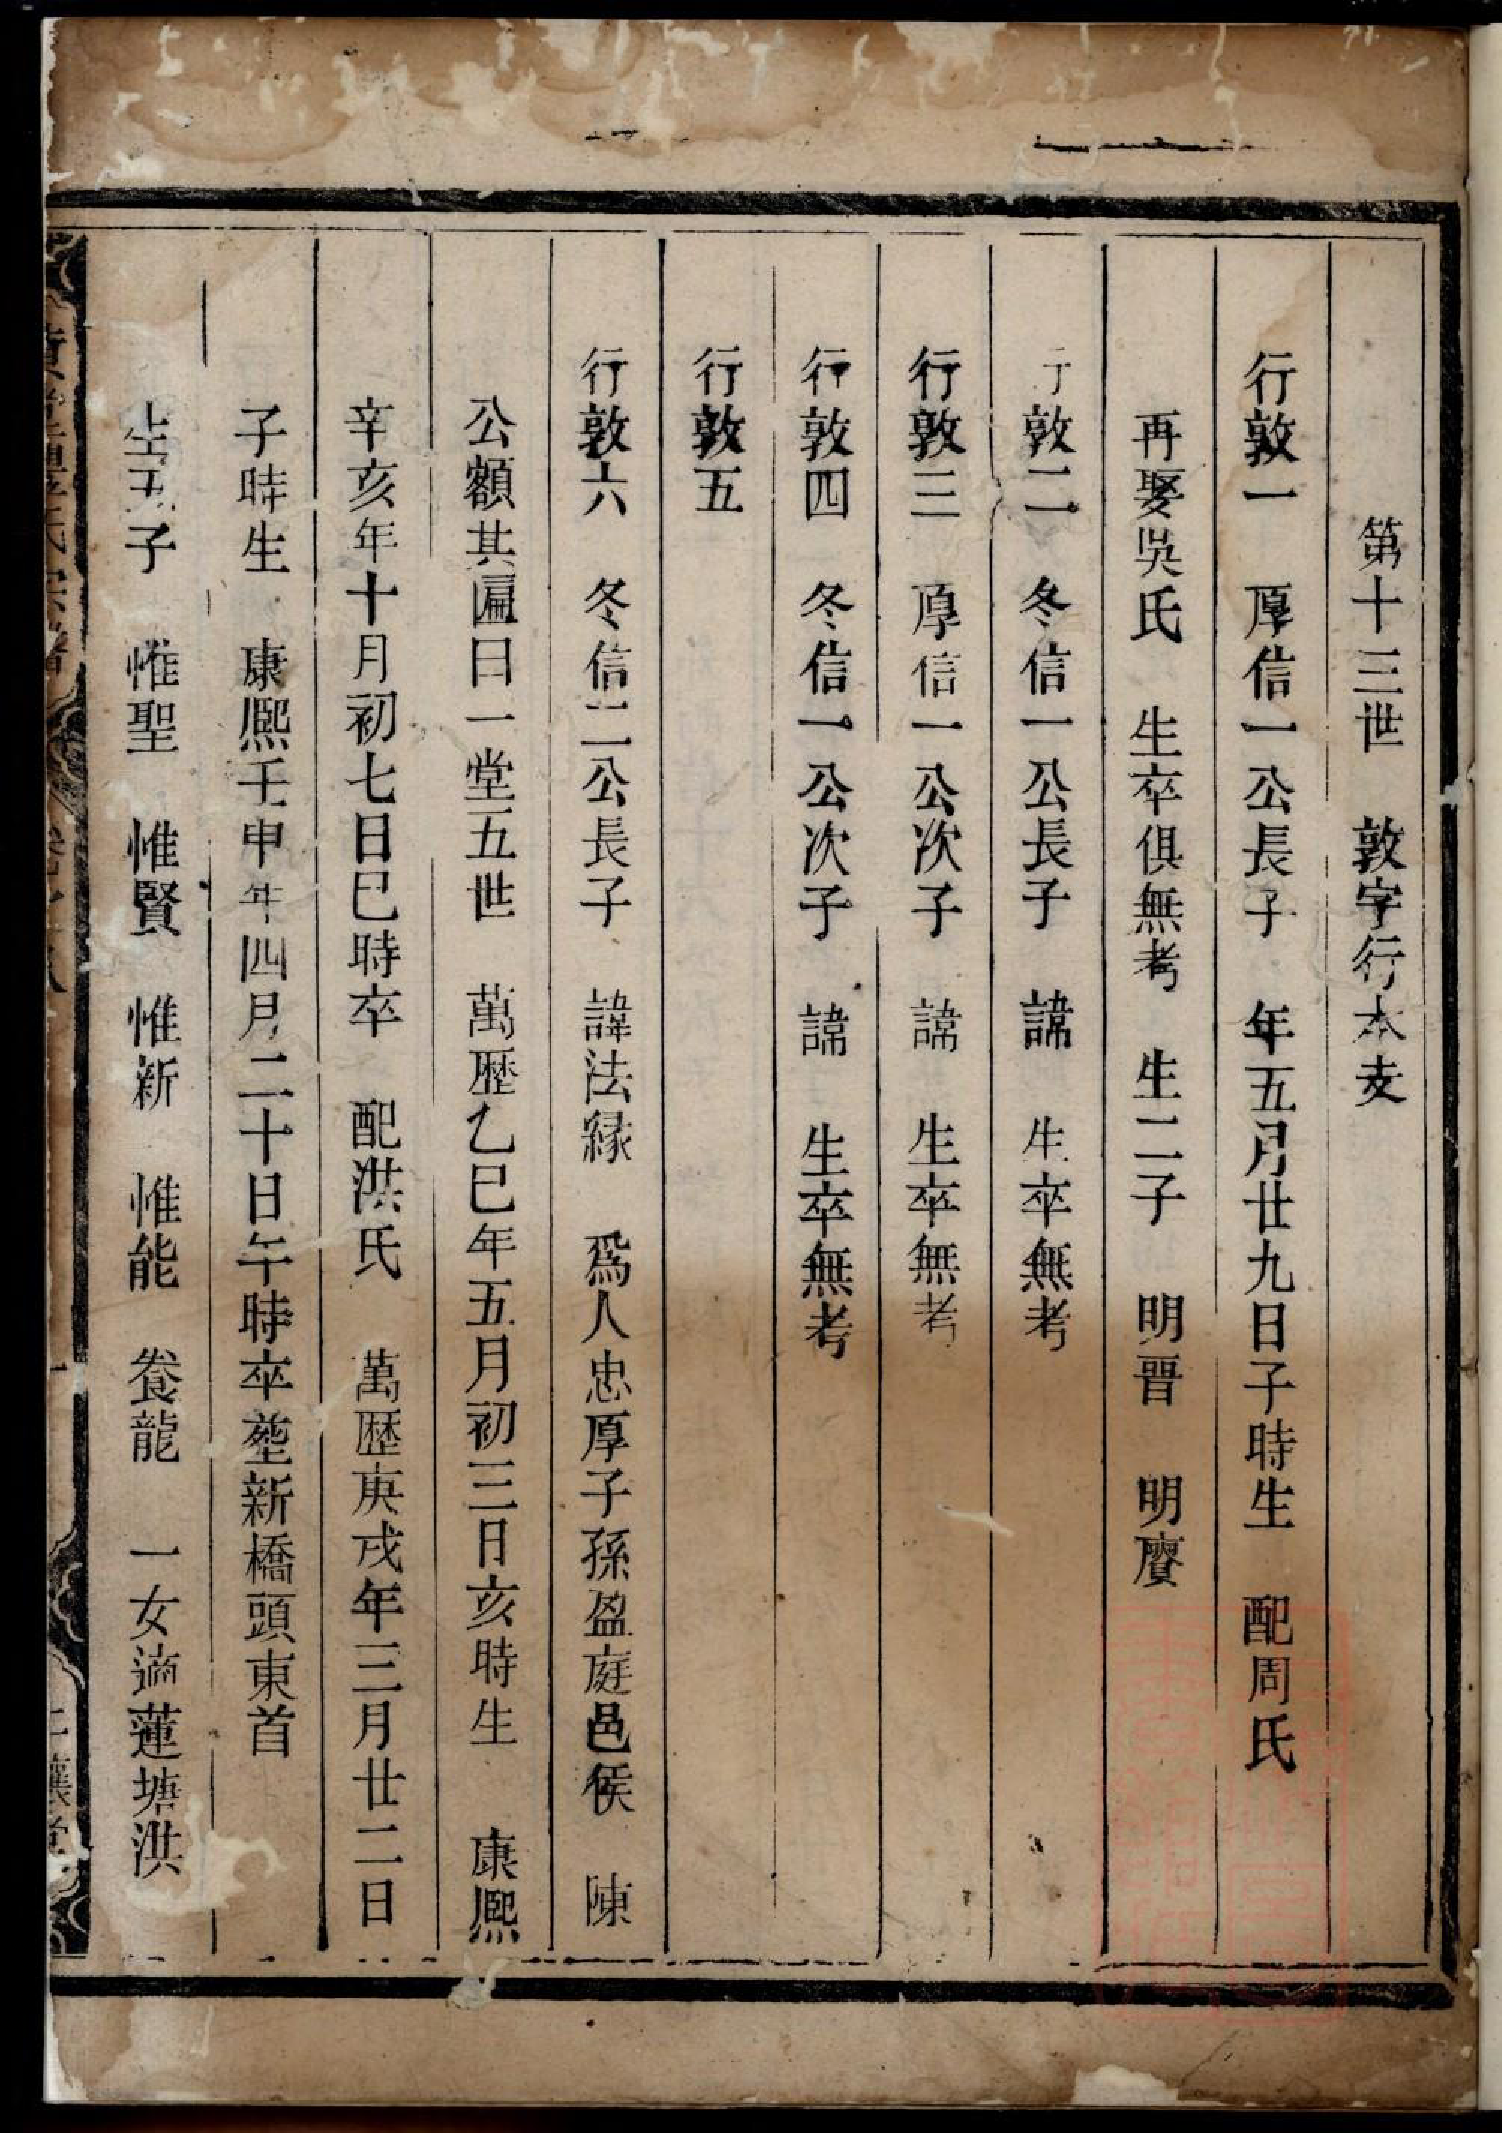 第十三世 敦字行本支
行敦一 厚信一公長子 年五月廿九日子時生 配周氏
再娶吳氏 生卒俱無考 生二子 明晋 明賡
行敦二 冬信一公長子 諱 生卒無考
行敦三 厚信一公次子 諱 生卒無考
行敦四 冬信一公次子 諱 生卒無考
行敦五
行敦六 冬信二公長子 諱法緣 爲人忠厚子孫盈庭邑侯 陳
公額其匾曰一堂五世 萬歷乙巳年五月初三日亥時生 康熙
辛亥年十月初七日巳時卒 配洪氏 萬歷庚戌年三月廿二日
子時生 康熙壬申年四月二十日午時卒塟新橋頭東首
生五子 惟聖 惟賢 惟新 惟能 養龍 一女適蓮塘洪